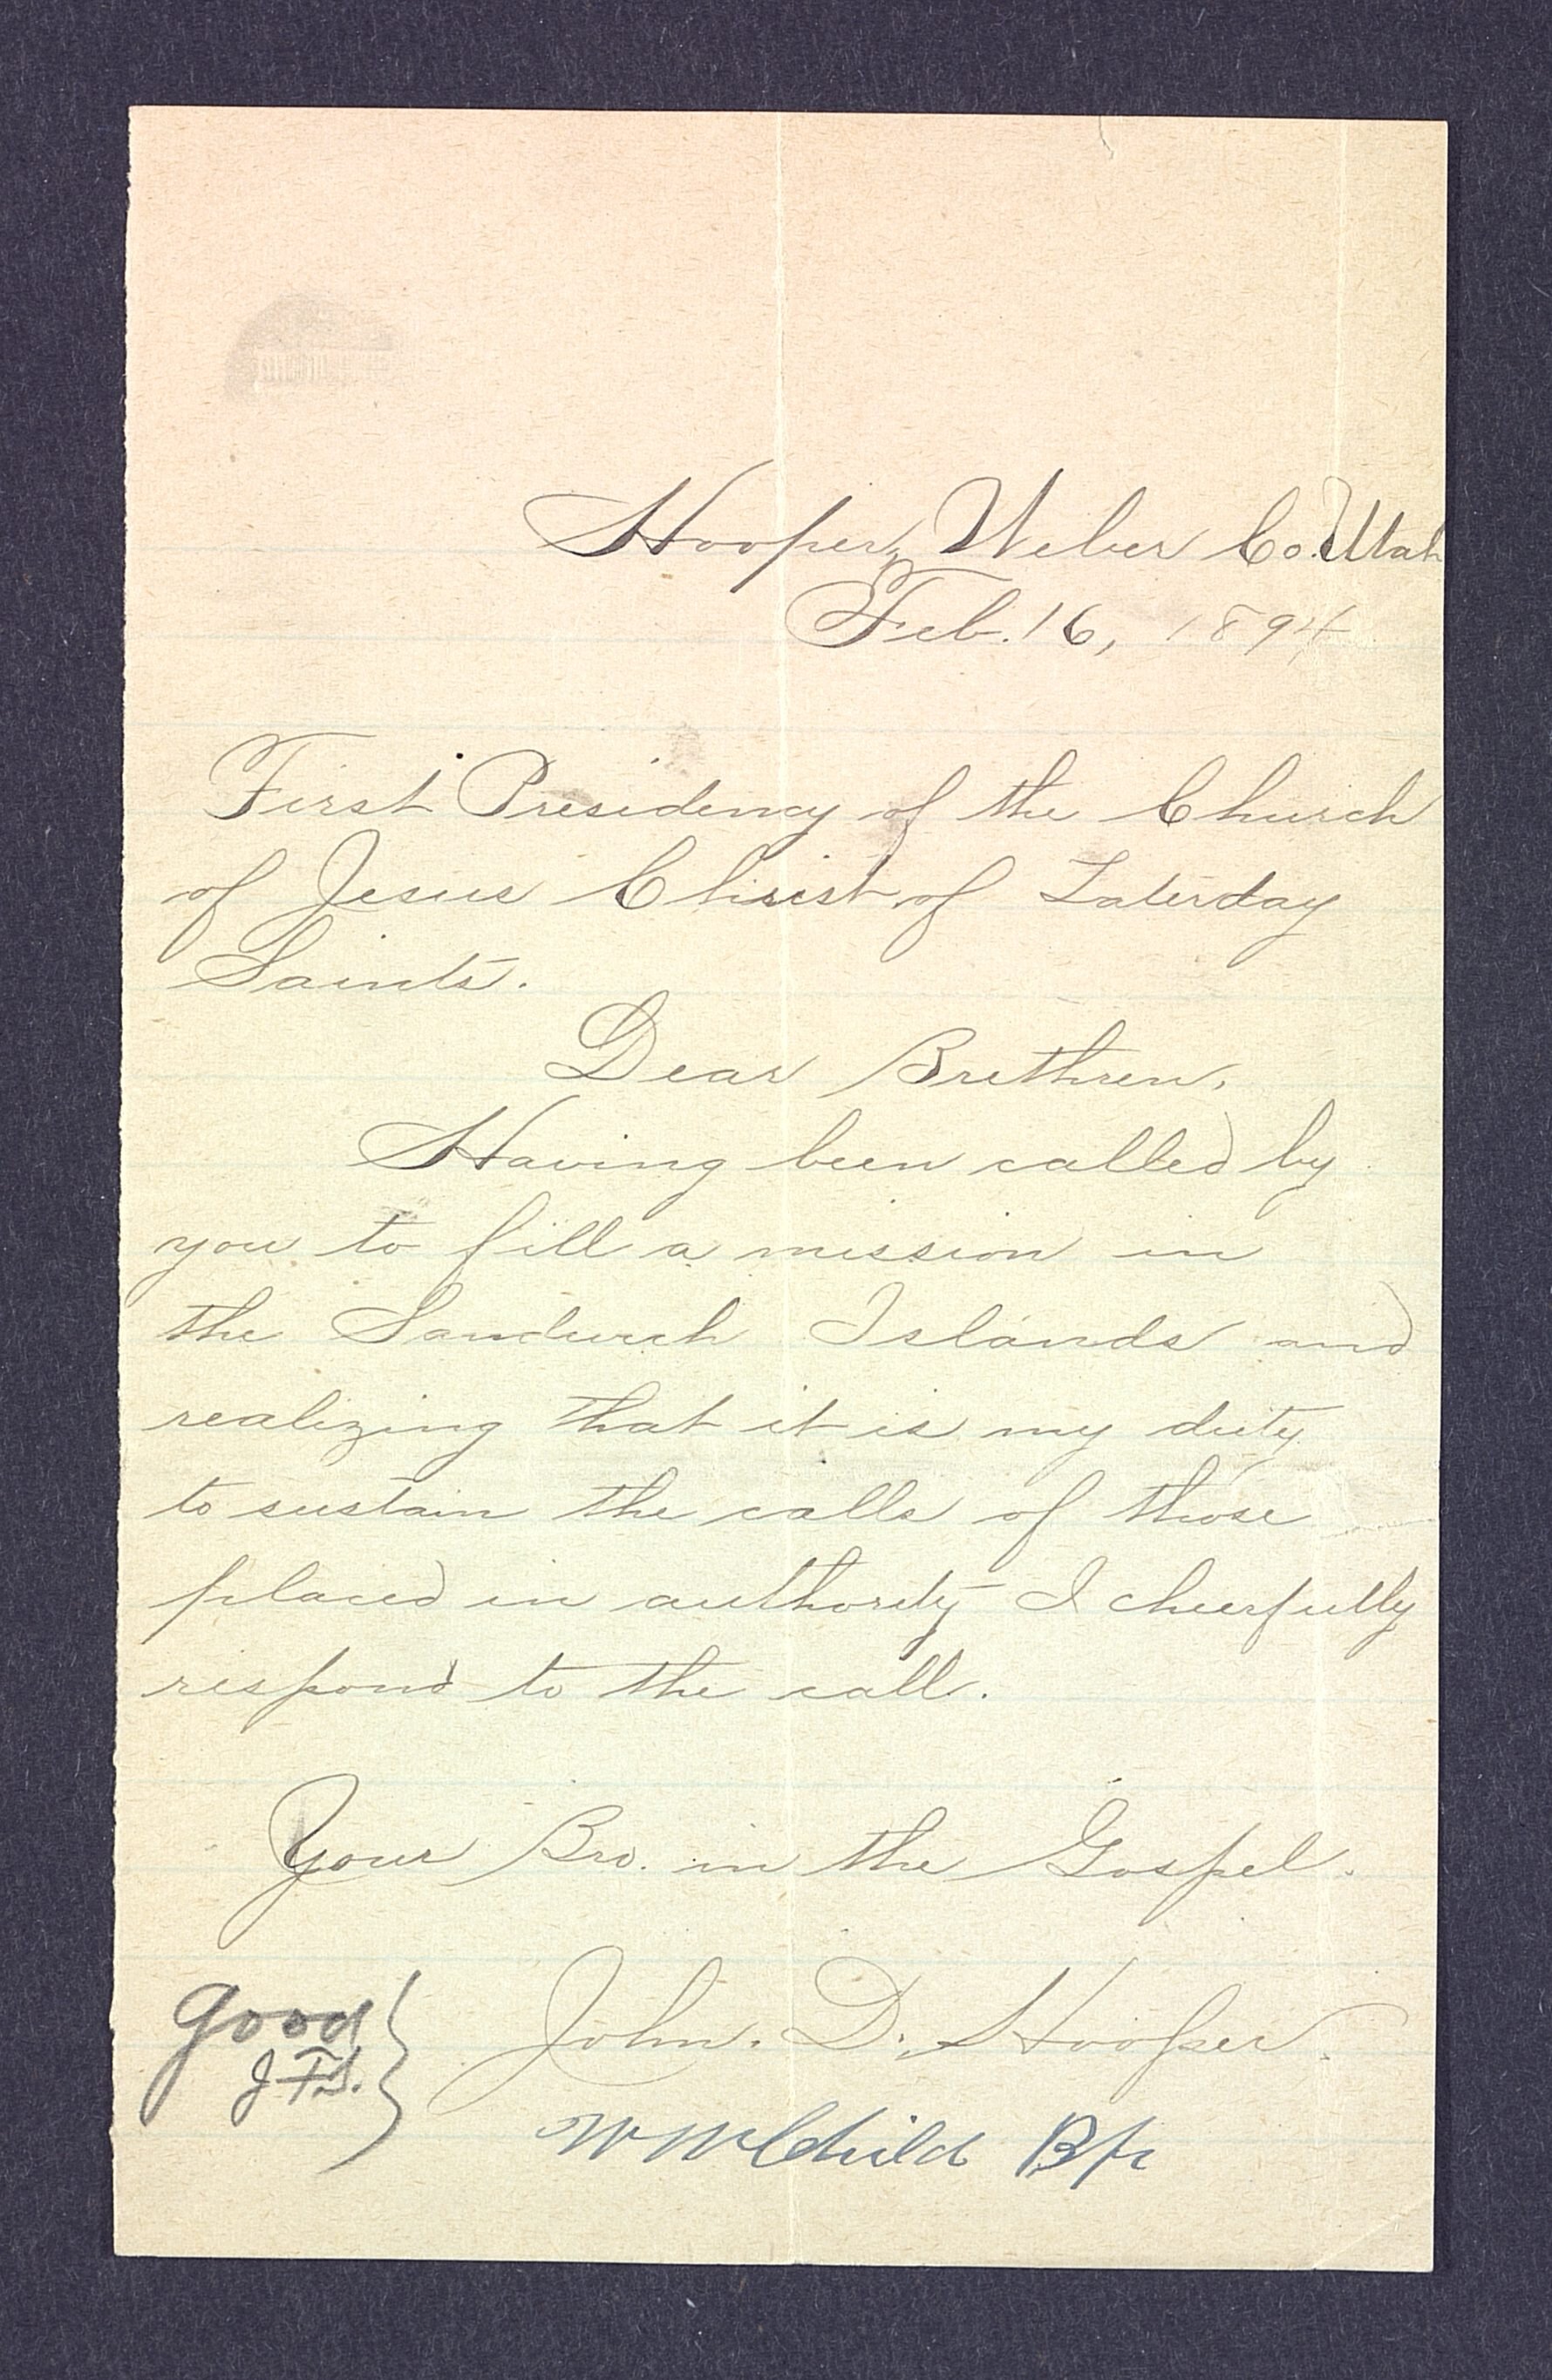 Hooper, Weber Co. Utah
Feb. 16, 1894
First Presidency of the Church
of Jesus Christ of Laterday
Saints.
Dear Brethren,
Having been called by
you to fill a mission in
the Sandwich Islands and
realizing that it is my duty
to sustain the calls of those
placed in authority I cheerfully
respond to the call.
Your Bro. in the Gospel.
John. D. Hooper.
good
J F S.
W W Child Bp